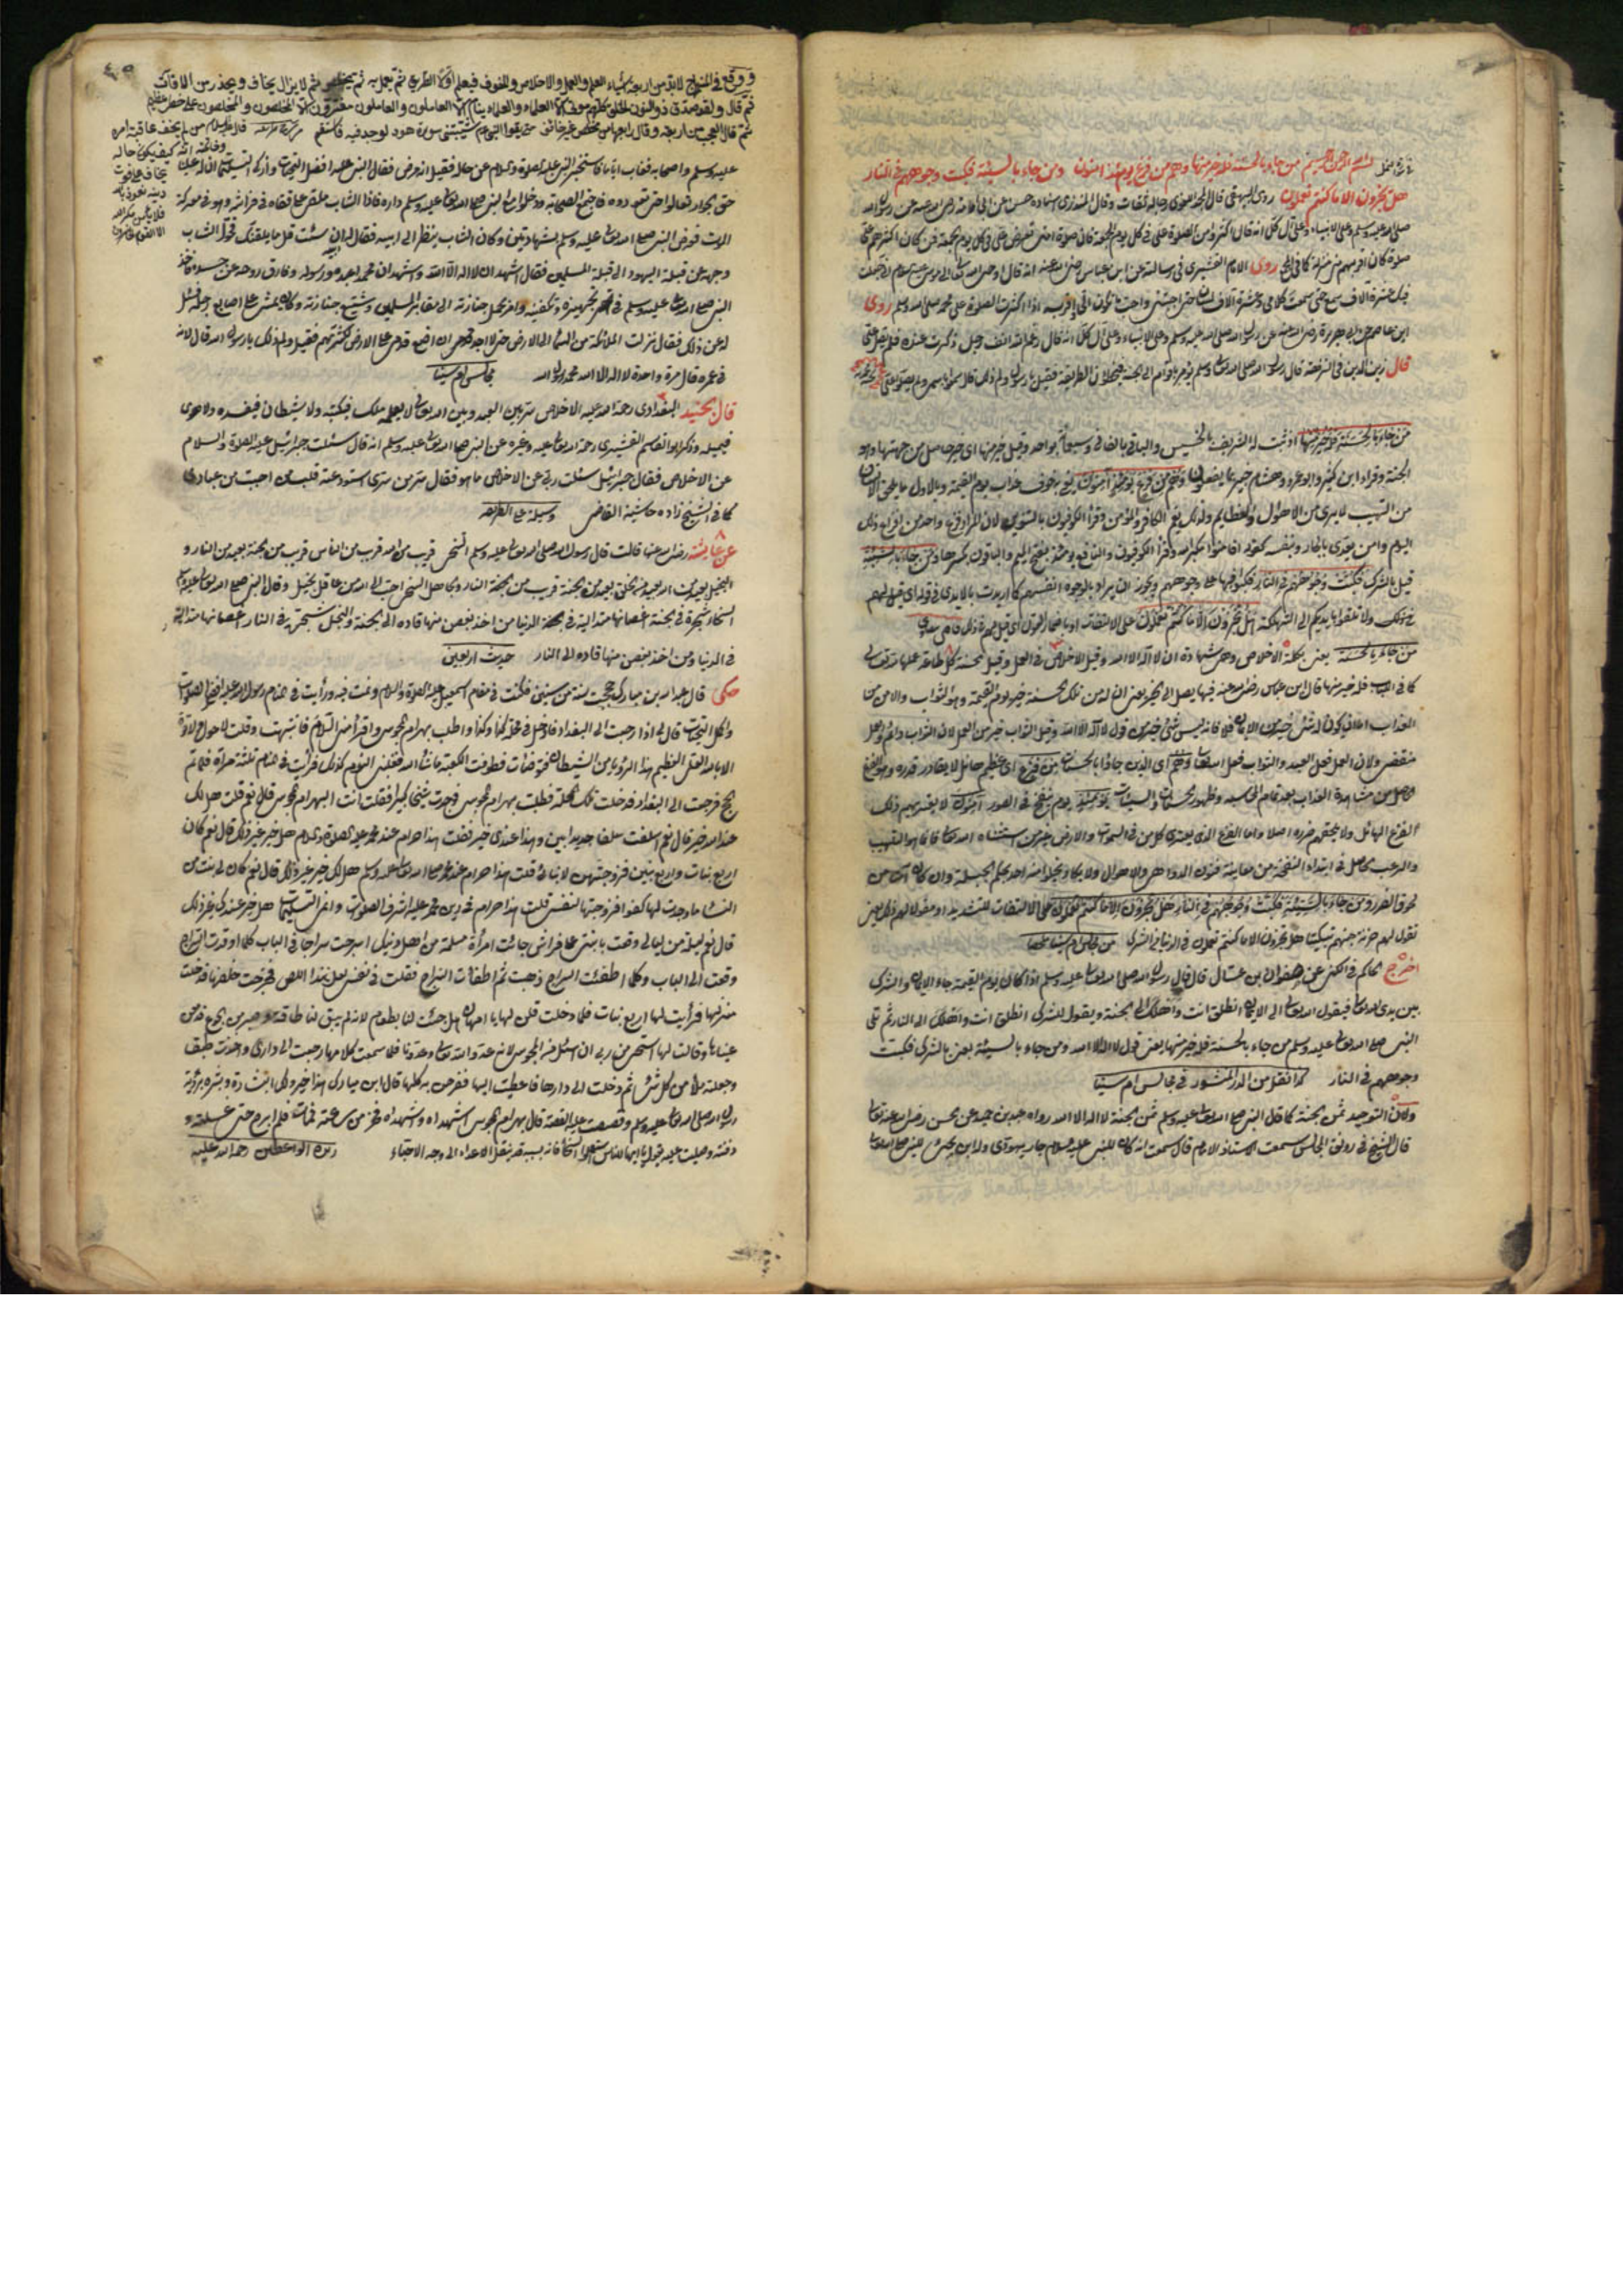 بسم الله الرحمن الرحيم من جاء بالحسنة فله خير منها وهم من فزع يومئذ آمنون ومن جاء بالسيئة فكبت وجوههم في النار
هل تجزون الا ما كنتم تعملون روى البيهقي قال رجاله ثقات وقال المنذري اسناده حسن عن ابي امامة رضي الله عنه عن رسول الله
صلى الله عليه وسلم وعلى الانبياء وعلى آل كل انه قال اكثروا من الصلوة علي في كل يوم الجمعة فان صلوة امتي تعرض علي في كل يوم جمعة فمن كان اكثرهم علي
صلوة كان اقربهم مني منزلة روى الامام القشيري في رسالته عن ابن عباس رضي الله عنه انه قال اوحى الله تعالى الى موسى عليه السلام اني جعلت
فيك عشرة آلاف سمع حتى سمعت كلامي وعشرة آلاف لسان حتى اجبتني واحب ما تكون الي واقربه اذا اكثرت الصلوة على محمد صلى الله عليه وسلم روى
ابن عاصم عن ابي هريرة رضي الله عنه عن رسول الله صلى الله عليه وسلم وعلى الانبياء وعلى آل كل انه قال رغم الله انف رجل ذكرت عنده فلم يصل علي
قال زين الدين في النزهة قال رسول الله صلى الله تعالى عليه وسلم يؤمر باقوام الى الجنة فيخطئون الطريق فقيل يا رسول الله ولم ذلك قال سمعوا باسمي ولم يصلوا علي
من جاء بالحسنة فله خير منها اذ ثبت له الشريف بالخسيس والباقي بالفاني وسبعمائة بواحد وقيل خير منها اي خير حاصل من جهتها وهو
الجنة وقرأ ابن كثير وابو عمرو وهشام خبير بما يفعلون وهم من فزع يومئذ آمنون يعني به خوف عذاب يوم القيمة وبالاول ما يلحق الانسان
من التهيب لما يرى من الاهوال والعظايم ولذلك يعم الكافر والمؤمن وقرأ الكوفيون بالتنوين لان المراد فزع واحد من افزاع ذلك
اليوم وامن يعدى بالجار وبنفسه كقوله افامنوا مكر الله وقرأ الكوفيون ونافع يومئذ بفتح الميم والباقون بكسرها ومن جاء بالسيئة
قيل بالشرك فكبت وجوههم في النار فكبوا فيها على وجوههم ويجوز ان يراد بالوجوه انفسهم كما اريدت بالايدي في قوله
ولا تلقوا بايديكم الى التهلكة هل تجزون الا ما كنتم تعملون على الالتفات او باضمار القول اي قيل لهم ذلك قاضي
من جاء بالحسنة يعني بكلمة الاخلاص وهي شهادة ان لا اله الا الله وقيل الاخلاص في العمل وقيل الحسنة كل طاعة عملها لله تعالى
كما في اللباب فله خير منها قال ابن عباس رضي الله عنه فيها يصل الى الخير يعني ان له من تلك الحسنة خير يوم القيمة وهو الثواب والامن من
العذاب اما ان يكون له شئ خير من الايمان فلا فانه ليس شئ خير من قول لا اله الا الله وقيل الثواب خير من العمل لان الثواب دائم والعمل
منقض ولان العمل فعل العبد والثواب فعل الله تعالى وهم اي الذين جاؤا بالحسنات من فزع اي عظيم هائل لا يقادر قدره وهو الفزع
الحاصل من مشاهدة العذاب بعد تمام المحاسبة وظهور الحسنات والسيئات يومئذ يوم ينفخ في الصور آمنون لا يعتريهم ذلك
الفزع الهائل ولا يلحقهم ضرره اصلا واما الفزع الذي يعتري كل من في السموات والارض غير من استثناه الله تعالى فانما هو التهيب
والرعب الحاصل في ابتداء النفخة من معاينة فنون الدواهي والاهوال ولا يكاد يخلو منه احد بحكم الجبلة وان كان آمنا من
لحوق الضرر ومن جاء بالسيئة فكبت وجوههم في النار هل تجزون الا ما كنتم تعملون على الالتفات للتشديد او مقولا لهم ذلك يعني
تقول لهم خزنة جهنم تبكيتا هل تجزون الا ما كنتم تعملون في الدنيا من الشرك من مجالس ام سينا
اخرج الحاكم في الكنى عن صفوان بن عسال قال قال رسول الله صلى الله تعالى عليه وسلم اذا كان يوم القيمة جاء الايمان والشرك
بين يدي الله تعالى فيقول الله تعالى الى الايمان انطلق انت واهلك الى الجنة ويقول للشرك انطلق انت واهلك الى النار ثم تلى
النبي صلى الله تعالى عليه وسلم من جاء بالحسنة فله خير منها يعني قول لا اله الا الله ومن جاء بالسيئة يعني بالشرك فكبت
وجوههم في النار كذا نقل من الدر المنثور في مجالس ام سينا
وكان التوحيد ثمن الجنة كما قال النبي صلى الله تعالى عليه وسلم ثمن الجنة لا اله الا الله رواه عبد بن حميد عن الحسن رضي الله عنه تعالى
قال الشيخ في رونق المجالس سمعت الاستاذ الامام قال سمعت انه كان للنبي عليه السلام جار يهودي وله ابن يجئ للنبي صلى الله تعالى
ووقع في المنهاج لا بد من اربعة اشياء العلم والعمل والاخلاص والخوف فيعلم اولا الطريق ثم يعمل به ثم يخلص ثم لا يزال يخاف ويحذر من الآفات
ثم قال ولقد صدق ذو النون الخلق كلهم موتى الا العلماء والعلماء نيام الا العاملون والعاملون مغترون الا المخلصون والمخلصون على خطر عظيم
ثم قال العجب من اربعة وقال رابعها من مخلص غير خائف شيبتني سورة هود
قال عليه السلام من لم يخف عاقبة امره
وخاتمة
كيف يكون حاله
يخاف على فوت
دينه نعوذ بالله
فلا يأمن مكر الله
الا القوم الخاسرون
عليه وسلم واصحابه فغاب اياما فاستخبر النبي عليه الصلوة والسلام عن حاله فقيل انه مرض فقال النبي عليه افضل التحيات وازكى التسليمات
حق الجوار تعالوا حتى نعوده فاجتمع الصحابة ودخلوا مع النبي صلى الله تعالى عليه وسلم داره فاذا الشاب ملقى على قفاه في فراشه وهو في سكرة
الموت فعرض النبي صلى الله تعالى عليه وسلم الشهادتين وكان الشاب ينظر الى ابيه فقال له ابوه ان شئت قل ما يلقنك فحول الشاب
وجهه عن قبلة اليهود الى قبلة المسلمين فقال اشهد ان لا اله الا الله واشهد ان محمدا عبده ورسوله وفارق روحه عن جسده فاخذ
النبي صلى الله تعالى عليه وسلم في تجهيزه وتكفينه وامر بحمل جنازته الى مقابر المسلمين وشيع جنازته وكان يمشي على اصابع رجله فسئل
له عن ذلك فقال نزلت الملائكة من السماء الى الارض حتى لا اجد موضعا ان اضع قدمي على الارض لكثرتهم فقيل ولم ذلك يا رسول الله قال لانه
في عمره قال مرة واحدة لا اله الا الله محمد رسول الله مجالس ام سينا
قال الجنيد البغدادي رحمة الله عليه الاخلاص سر بين العبد وبين الله تعالى لا يعلمه ملك فيكتبه ولا شيطان فيفسده ولا هوى
فيميله وذكر ابو القاسم القشيري رحمة الله تعالى عليه وغيره عن النبي صلى الله تعالى عليه وسلم انه قال سئلت جبرائيل عليه الصلوة والسلام
عن الاخلاص فقال جبرائيل سئلت ربي عن الاخلاص ما هو فقال سر من سري استودعته قلب من احببت من عبادي
كما في الشيخ زاده حاشية القاضي وسيلة على الطريقة
عن عايشة رضي الله عنها قالت قال رسول الله صلى الله تعالى عليه وسلم السخي قريب من الله قريب من الناس قريب من الجنة بعيد من النار و
البخيل بعيد من الله بعيد من الخلق بعيد من الجنة قريب من النار وجاهل السخي احب الى الله من عاقل بخيل وقال النبي صلى الله عليه وسلم
السخاء شجرة في الجنة اغصانها متدلية في الدنيا من اخذ بغصن منها قاده الى الجنة والبخل شجرة في النار اغصانها متدلية
في الدنيا ومن اخذ بغصن منها قاده الى النار حديث اربعين
حكي قال عبد الله بن مبارك حججت سنة من سنين فكنت في مقام اسمعيل عليه الصلوة والسلام ونمت فيه ورأيت في المنام رسول الله عليه افضل الصلوات
واكمل التحيات قال لي اذا رجعت الى البغداد فادخل في محلة كذا وكذا واطلب بهرام المجوس واقرأ مني السلام فانتبهت وقلت لا حول ولا قوة
الا بالله العلي العظيم هذا الرؤيا من الشيطان فتوضأت فطوفت الكعبة ما شاء الله فغلبني النوم كذلك فرأيت في المنام ثلثة مرات فلما تم
الحج فرجعت الى البغداد فدخلت تلك المحلة فطلبت بهرام المجوسي فوجدت شيخا كبيرا فقلت انت البهرام المجوس قال نعم قلت هل لك
عند الله خير قال نعم اسلفت سلفا وهذا عندي خير فقلت هذا حرام عند محمد عليه الصلوة والسلام هل خير غير ذلك قال نعم كان
اربع بنات واربع بنين فزوجتهن لابنائي قلت هذا حرام عند محمد صلى الله تعالى عليه وسلم هل لك خير غير ذلك قال نعم كان لي بنت من
النساء ما وجدت لها كفوا فزوجتها لنفسي قلت هذا حرام في دين محمد عليه اشرف الصلوات هل خير عندك غير ذلك
قال نعم ليلة من ليالي وقعت بابنتي على فراشي جائت امرأة مسلمة من اهل دينك اسرجت سراجا في الباب كلما اوقدت السراج
وقعت الى الباب وكلما اطفئت السراج ذهبت ثم اطفأت السراج فقلت في نفسي لعل هذا اللص فخرجت خلفها فدخلت
منزلها فرأيت لها اربع بنات فلما دخلت قلن لها يا امهاه هل جئت لنا بطعام لانه لم يبق لنا طاقة وصبر من الجوع فدمعت
عيناها وقالت لها استحي من ربي ان اسئل من المجوس لانه عدو الله تعالى وعدونا فلما سمعت كلامها رجعت الى داري واخذت طبق
وجعلته ملأ من كل شئ ثم دخلت الى دارها فاعطيت اليها ففرحن به كلها قال ابن مبارك هذا خير ولك البشارة وبشره برؤية
رسول الله صلى الله تعالى عليه وسلم وقصصت عليه القصة قال بهرام المجوس اشهد ان واشهد ان فخر من ساعته فمات فلم ابرح حتى غسلته و
دفنته وصليت عليه فيقول يا ايها الناس استعملوا السخاء فانه بسببه قد ينقل الاعداء الى درجة الاحباء زبدة الواعظين رحمة الله عليه